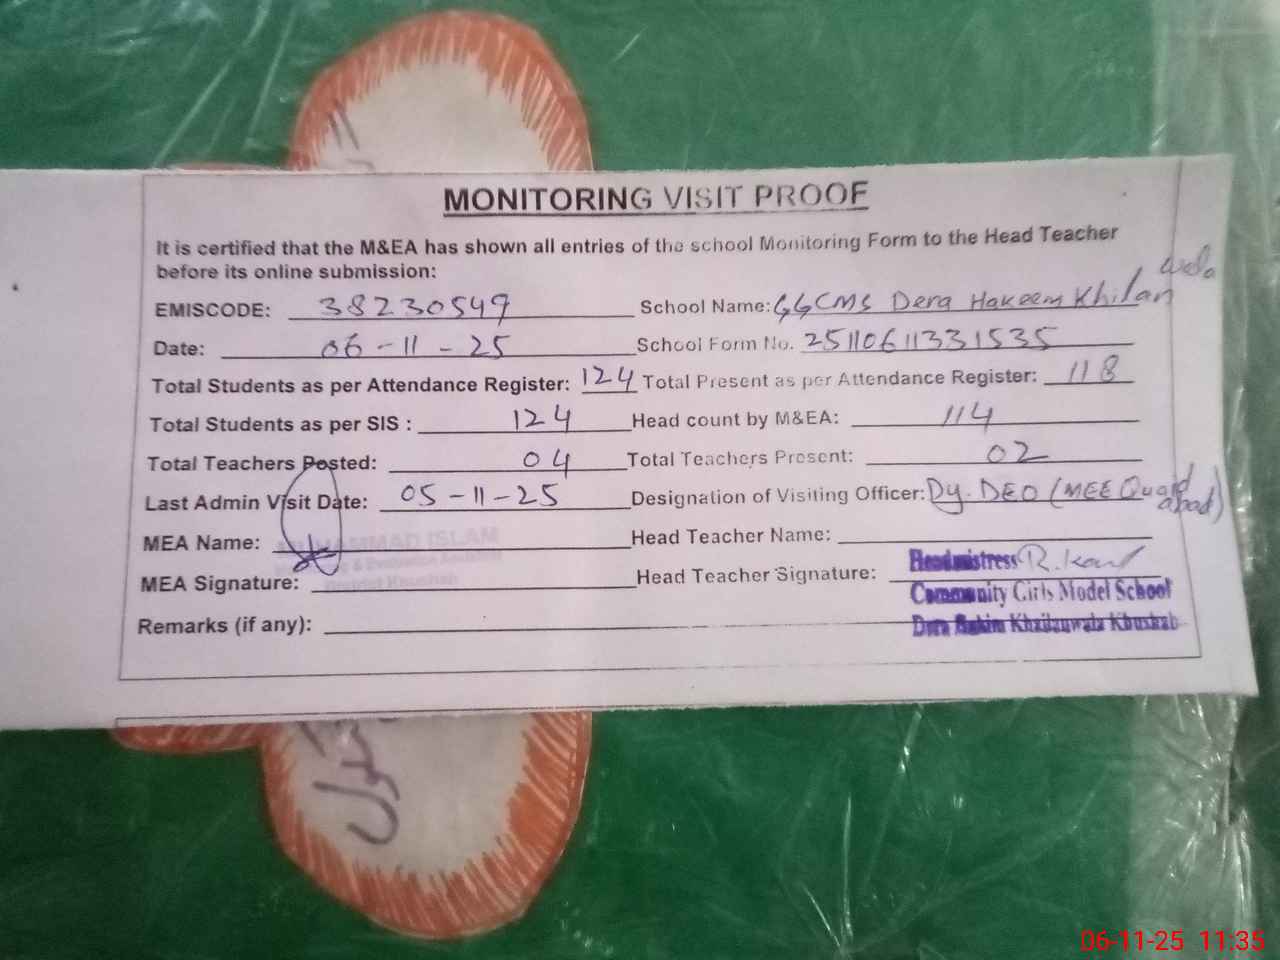 MONITORING VISIT PROOF
It is certified that the M&EA has shown all entries of the school Monitoring Form to the Head Teacher
before its online submission:
EMISCODE: 38230549 School Name: GGCMS Dera Hakeem Khilan wala
Date: 06-11-25 School Form No. 25110611331535
Total Students as per Attendance Register: 124 Total Present as per Attendance Register: 118
Total Students as per SIS : 124 Head count by M&EA: 114
Total Teachers Posted: 04 Total Teachers Present: 02
Last Admin Visit Date: 05-11-25 Designation of Visiting Officer: Dy. DEO (MEE Quaid abad)
MEA Name: MUHAMMAD ISLAM Head Teacher Name:
MEA Signature: District Khushab Head Teacher Signature: Headmistress
Community Girls Model School
Remarks (if any): Dera Hakim Khailanwala Khushab
06-11-25 11:35